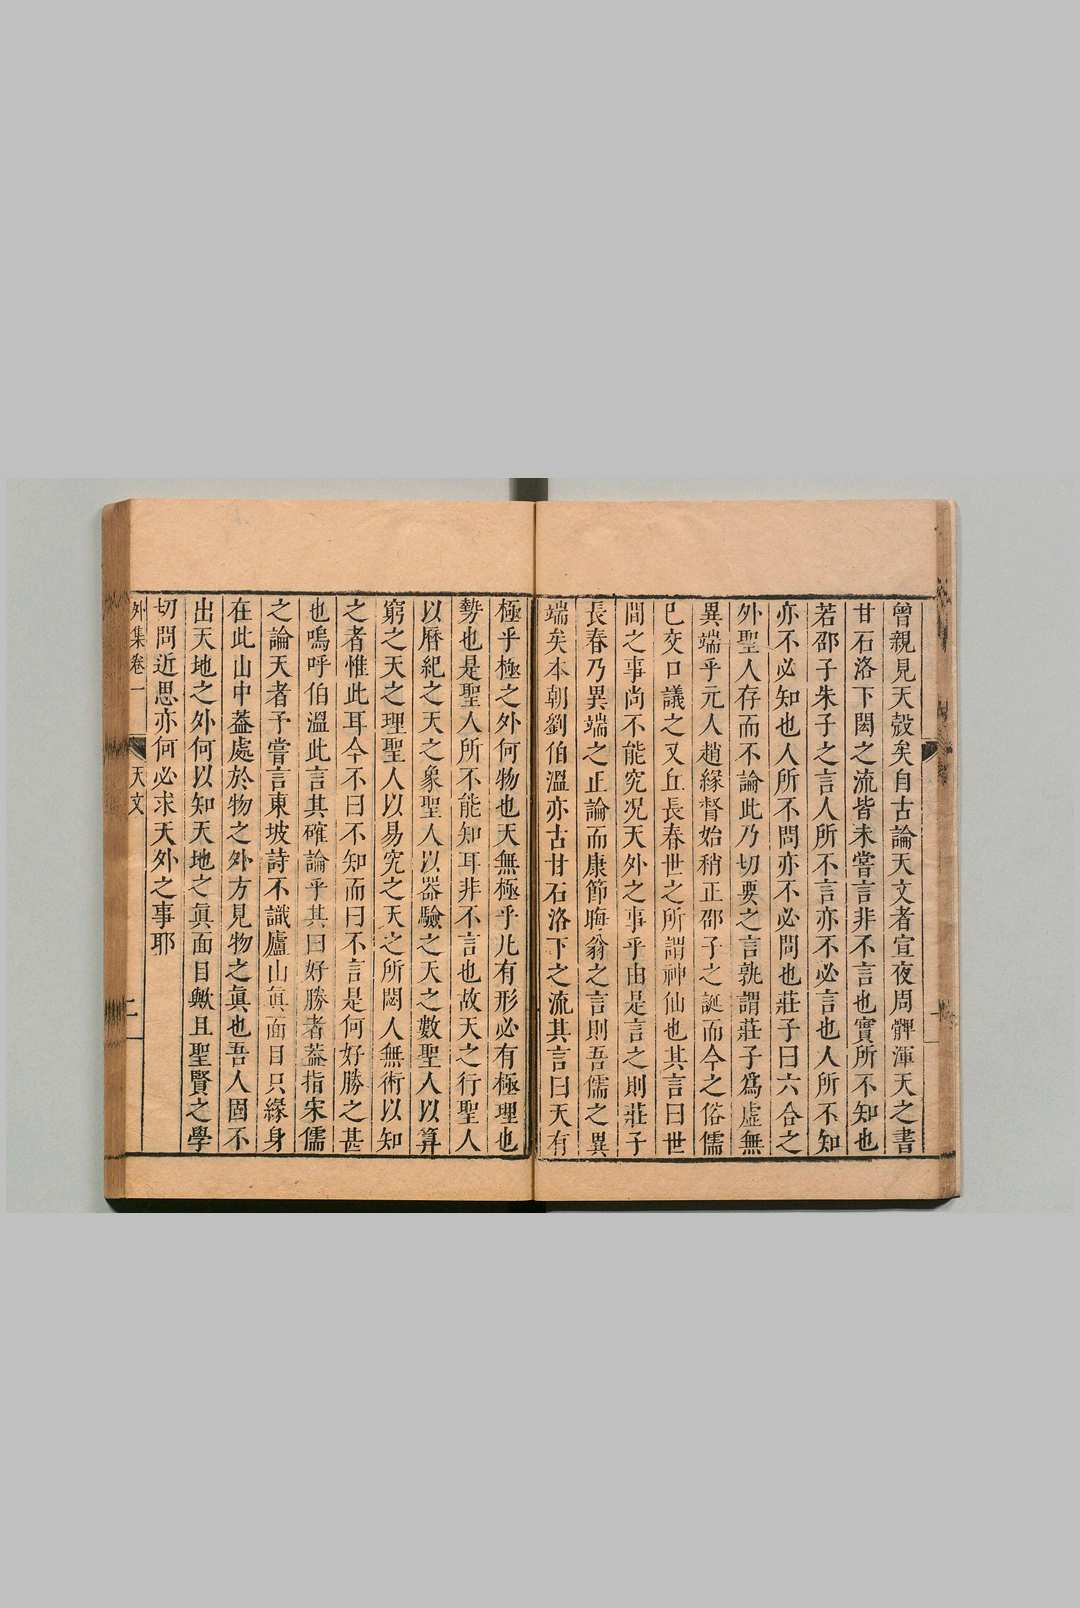 曾親見天殼矣自古論天文者宣夜周髀渾天之書
甘石洛下閎之流皆未嘗言非不言也實所不知也
若邵子朱子之言人所不言亦不必言也人所不知
亦不必知也人所不問亦不必問也莊子曰六合之
外聖人存而不論此乃切要之言孰謂莊子爲虛無
異端乎元人趙緣督始稍正邵子之誕而今之俗儒
已交口議之又丘長春世之所謂神仙也其言曰世
間之事尚不能究况天外之事乎由是言之則莊子
長春乃異端之正論而康節晦翁之言則吾儒之異
端矣本朝劉伯溫亦古甘石洛下之流其言曰天有
極乎極之外何物也天無極乎凡有形必有極理也
勢也是聖人所不能知耳非不言也故天之行聖人
以曆紀之天之象聖人以器驗之天之數聖人以算
窮之天之理聖人以易究之天之所閟人無術以知
之者惟此耳今不曰不知而曰不言是何好勝之甚
也嗚呼伯溫此言其確論乎其曰好勝者葢指宋儒
之論天者予嘗言東坡詩不識廬山眞面目只緣身
在此山中葢處於物之外方見物之眞也吾人固不
出天地之外何以知天地之眞面目歟且聖賢之學
切問近思亦何必求天外之事耶
外集卷一 天文 二